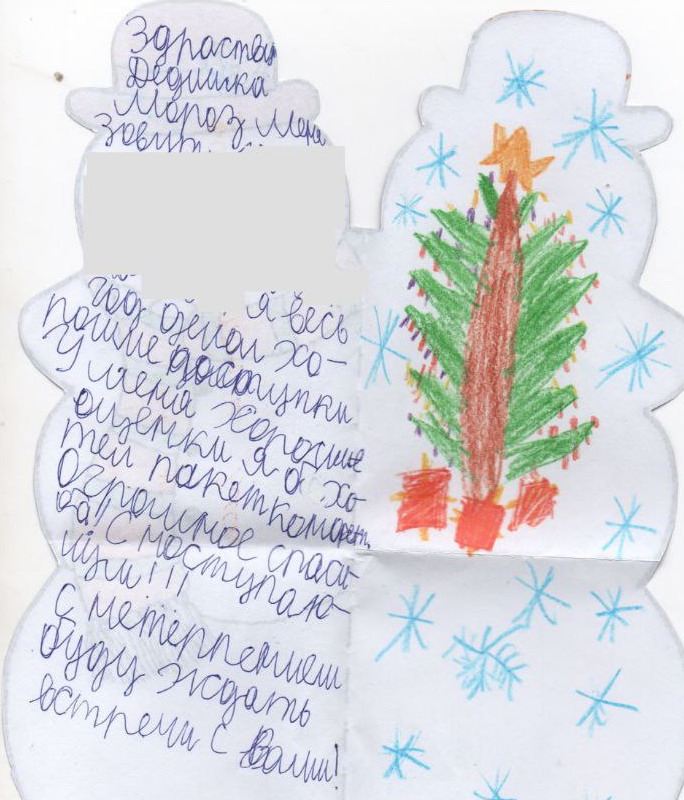 Здраствй
Дедушка
Мороз Меня
Зовут
Я весь
год делал хо-
рошие поступки
У меня хорошие
оценки Я б хо-
тел пакет конфет,
Огромное спаси-
ба! С наступаю-
щим!!!
С нетерпением
буду ждать
встречи с Вами!